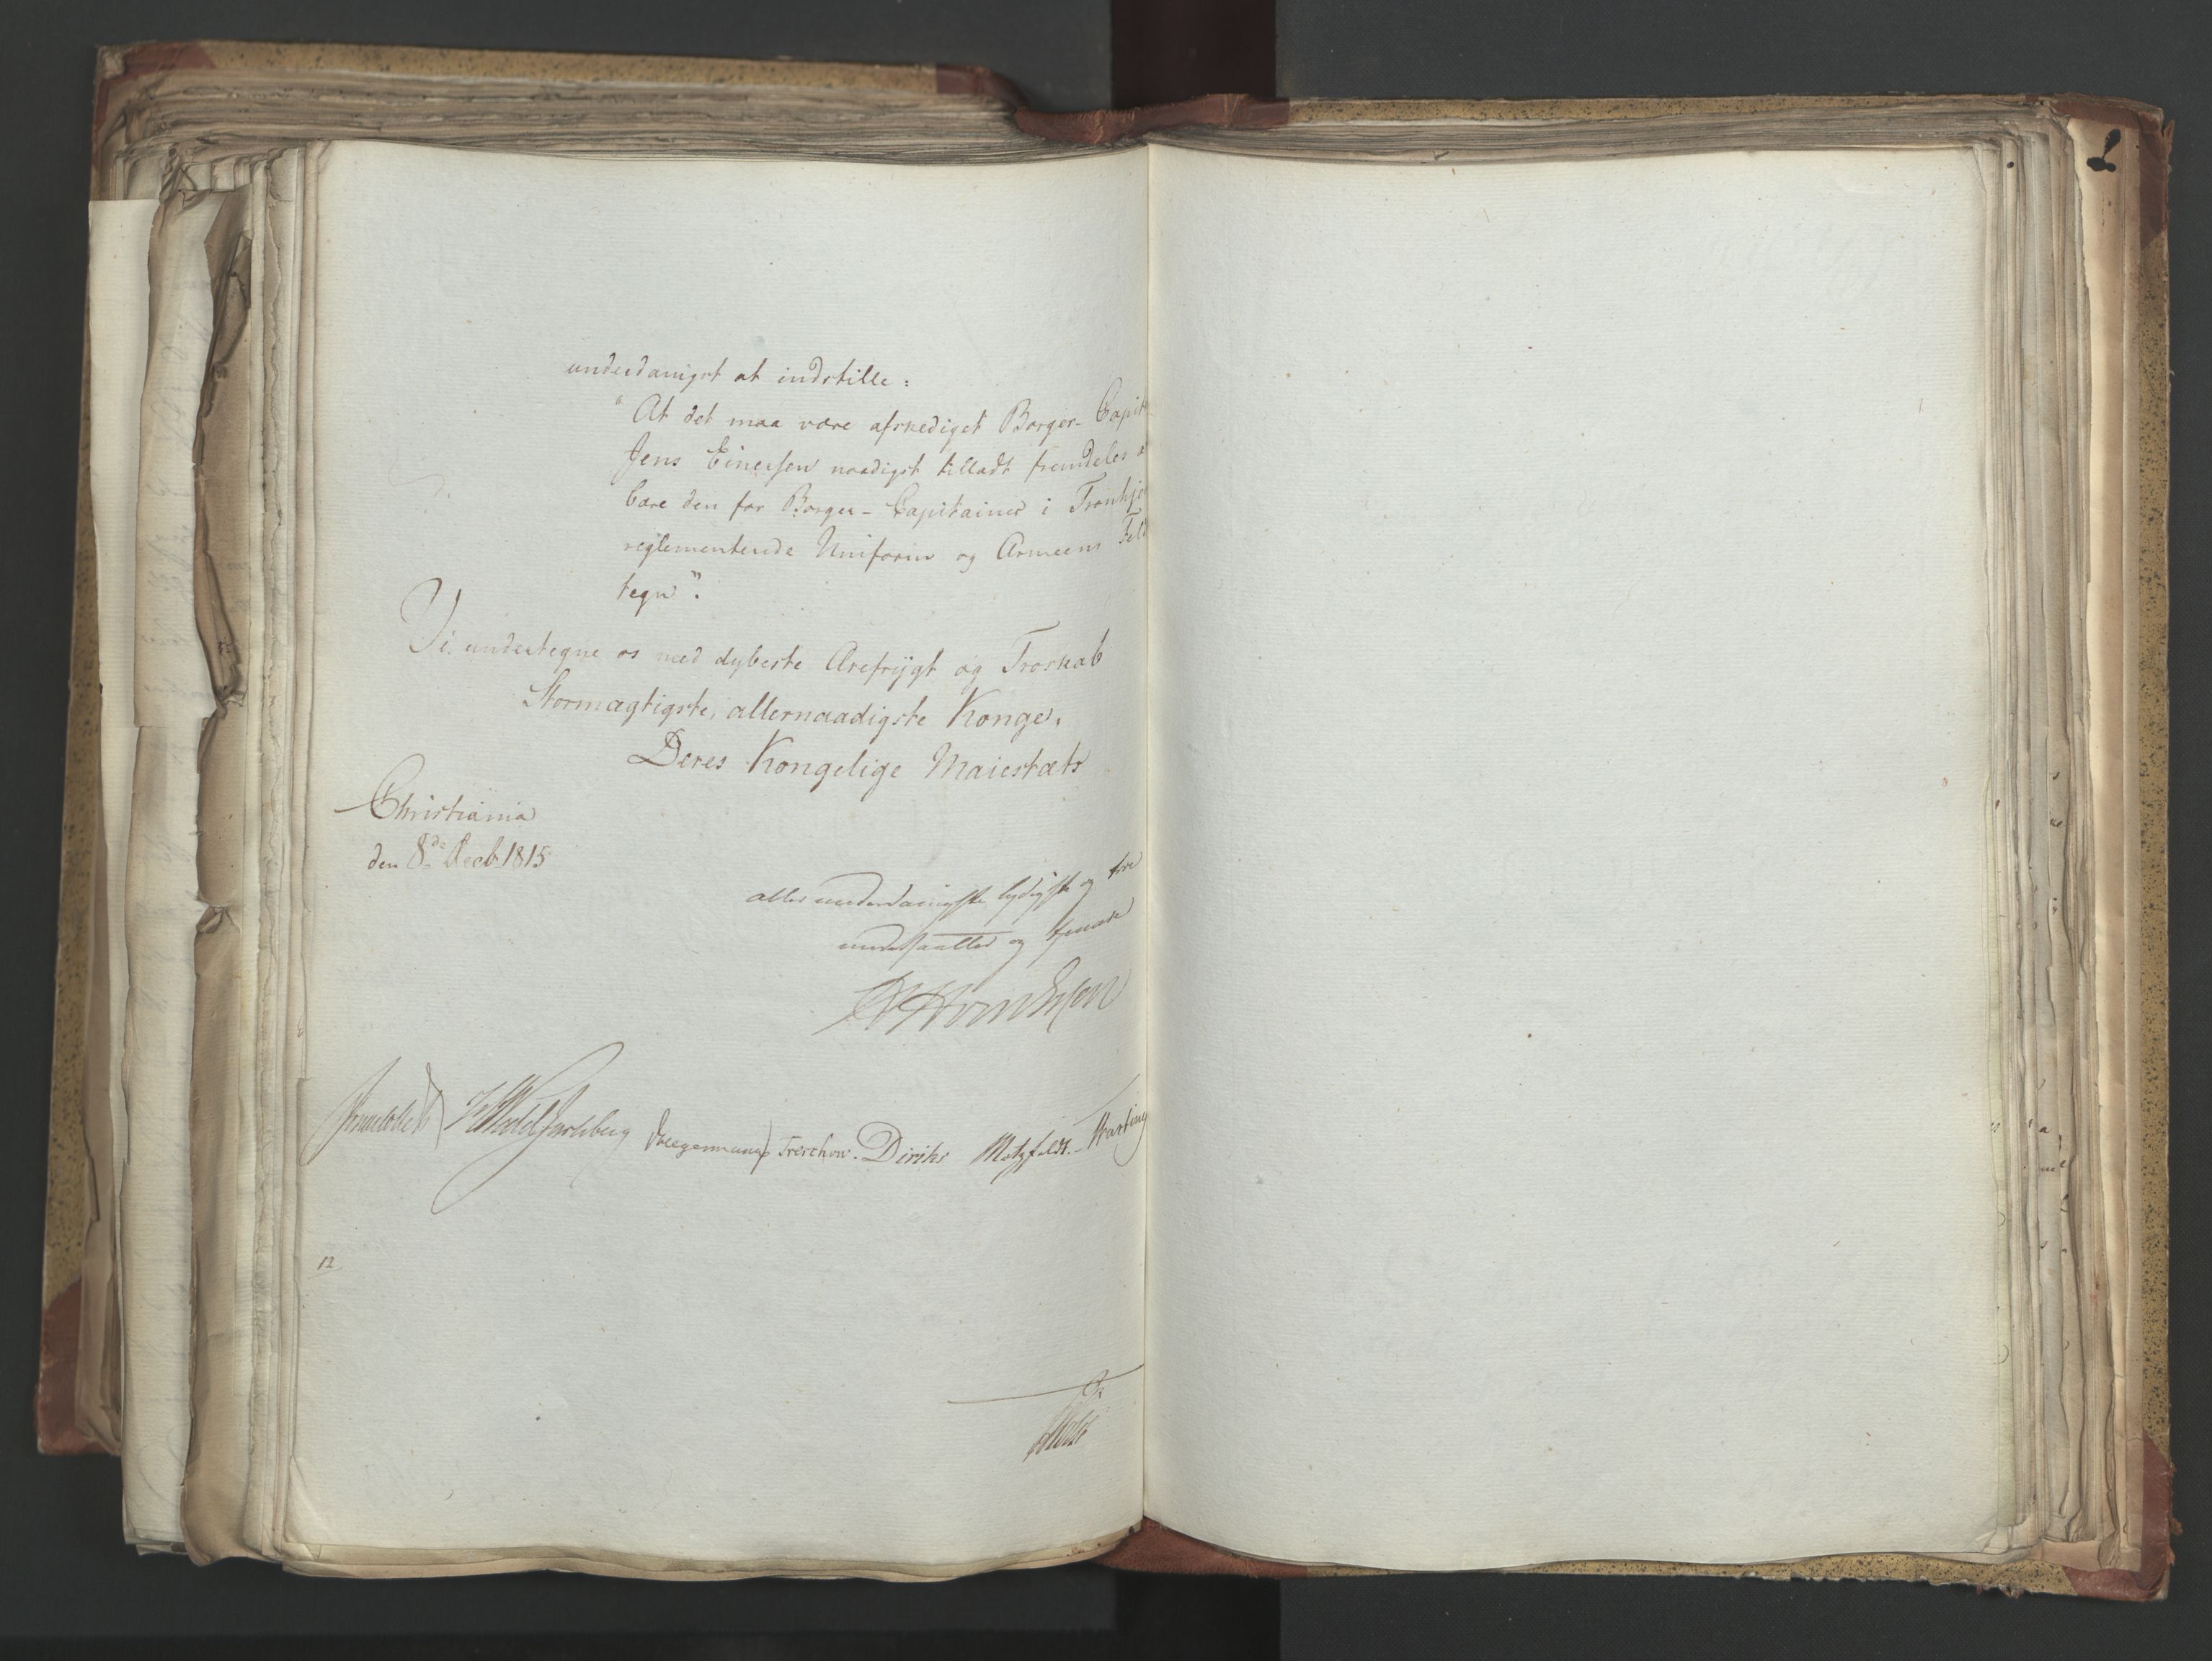 underdanigst at indstille:
"At det maa være afskediget Borger-Capit
Jens Einersen naadigst tilladt fremdeles a
bære den for Borger-Capitainer i Tronhje
reglementerede Uniform og Armeens Felt
tegn".
Vi undertegne os med dybeste Ærefrÿgt og Troskab
Stormægtigste, allernaadigste Konge,
Deres Kongelige Maiestæts
Christiania
den 8de Decb. 1815
allerunderdanigste lydigste og troe
undersaatter og tjenere
Sommerhielm Wedel Jarlsberg Fleegermann Treschow. Diriks Motzfeldt.
12
Holst